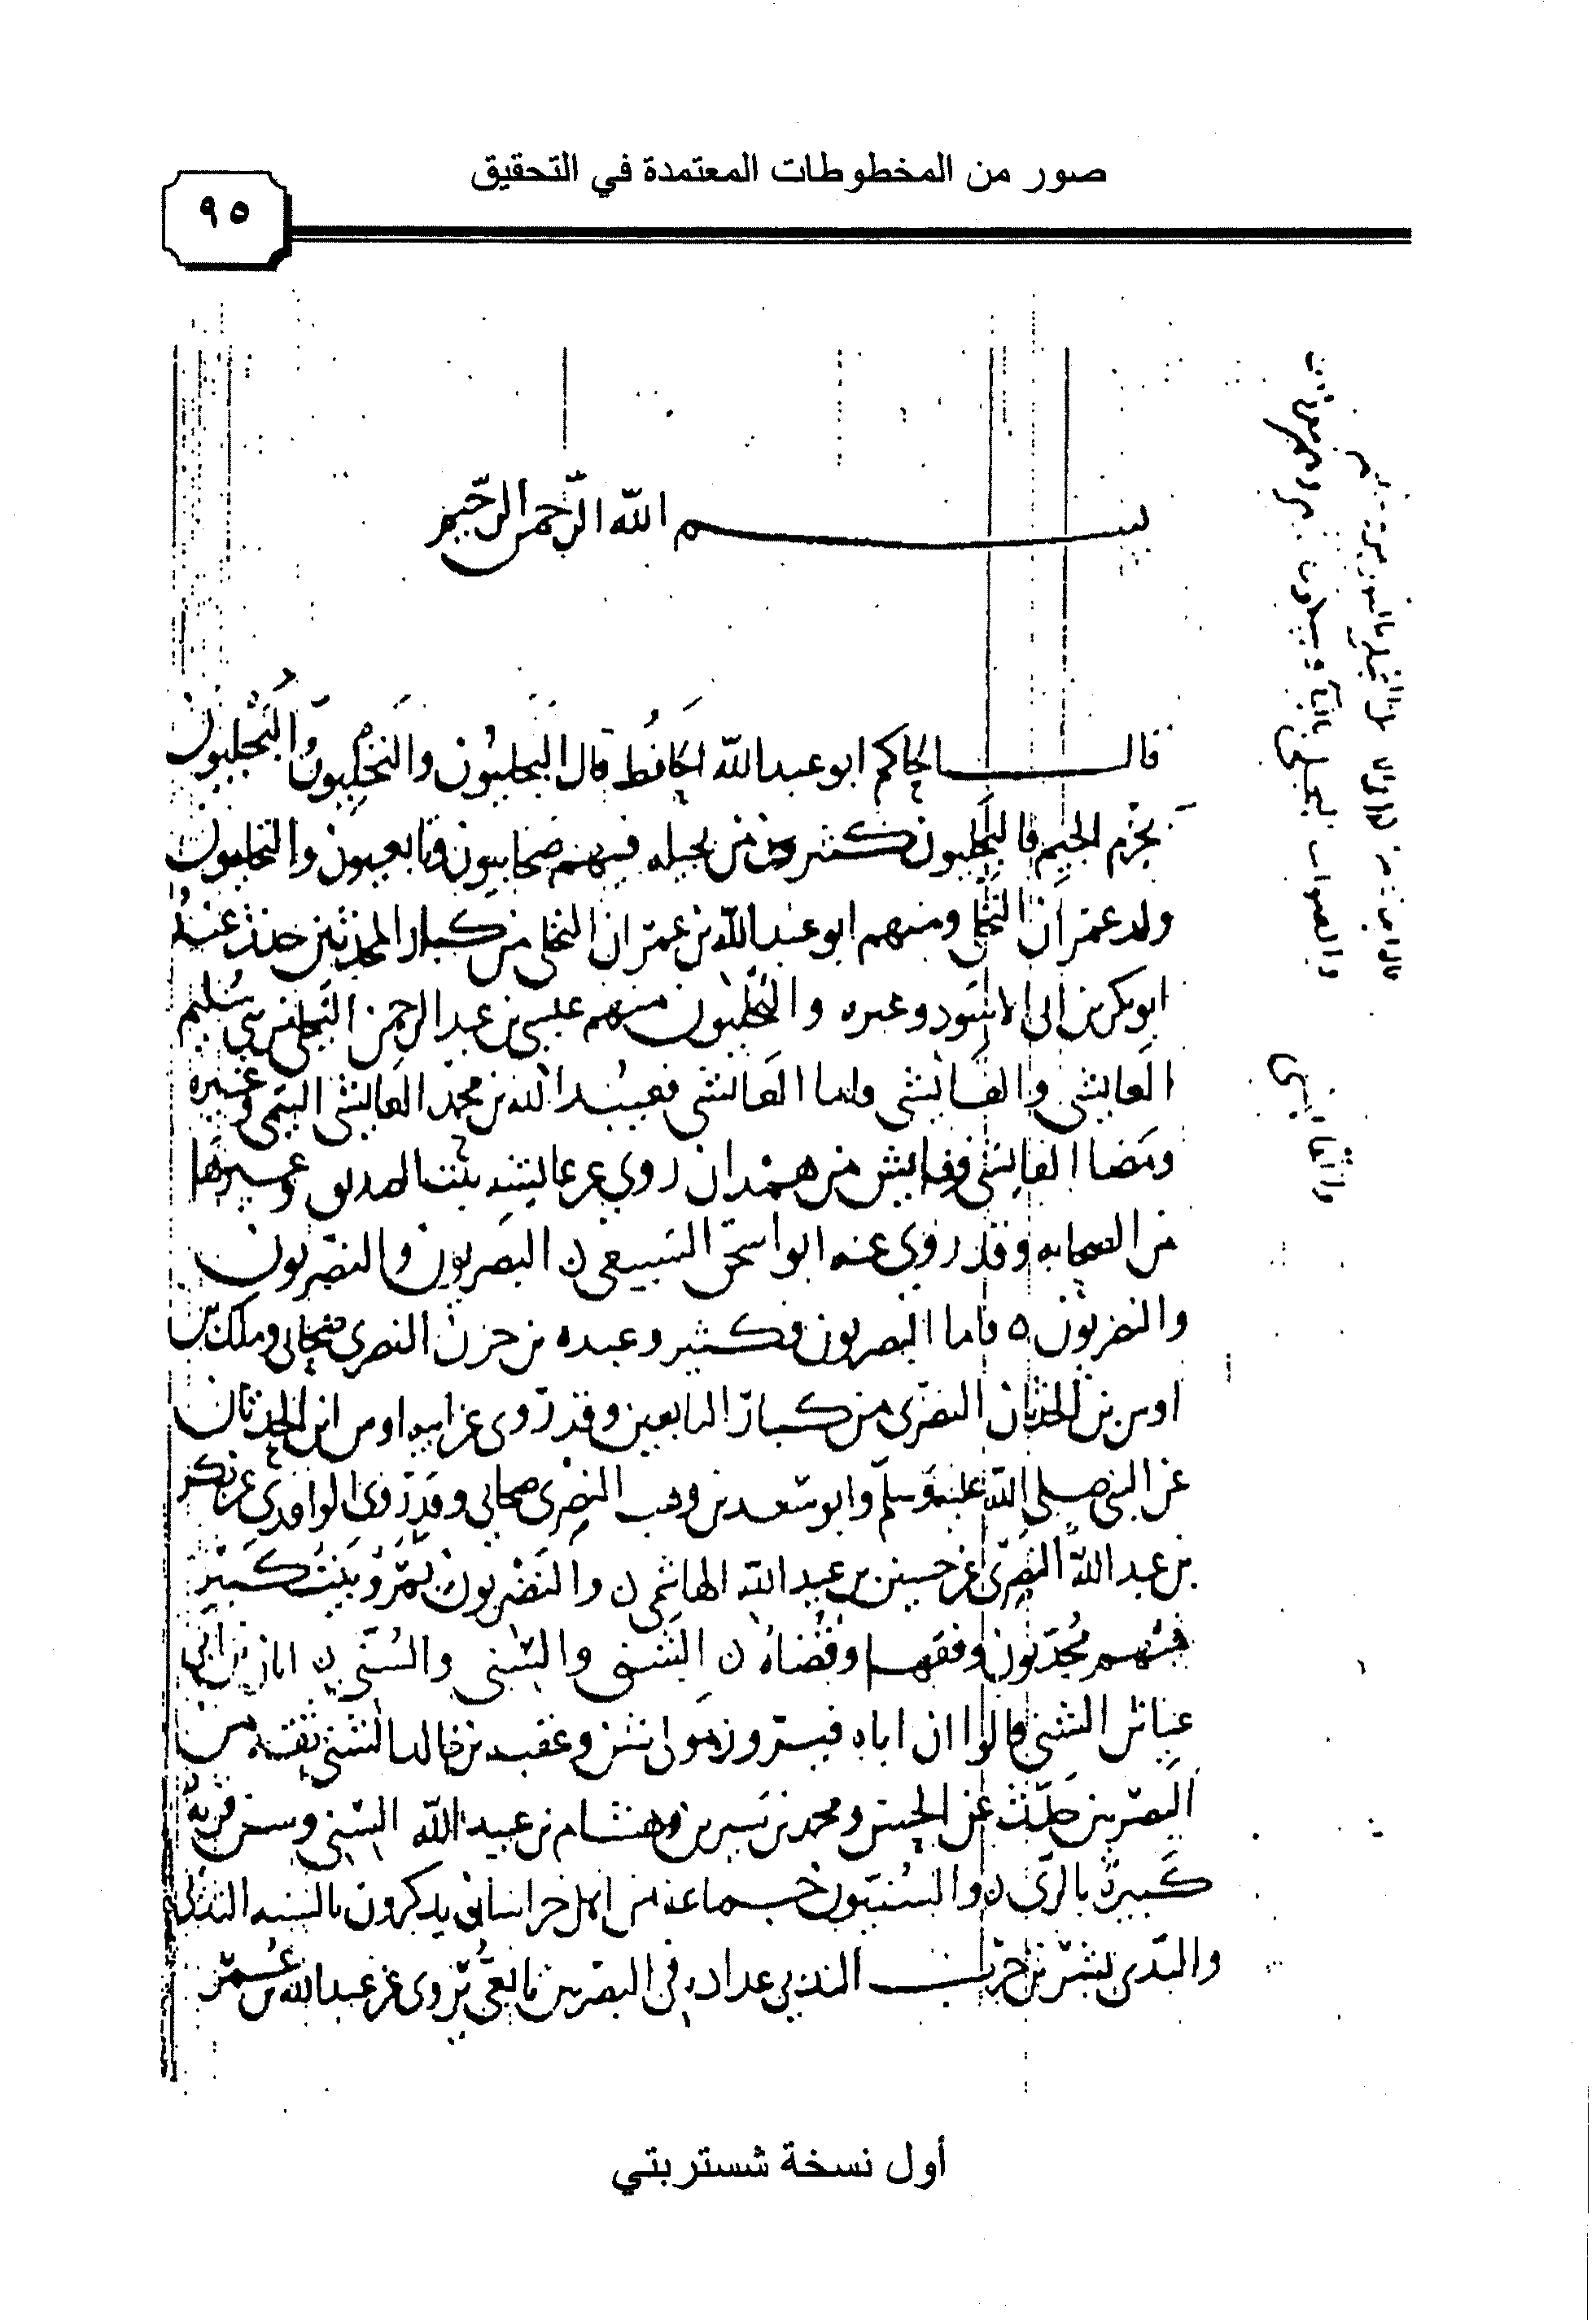 صور من المخطوطات المعتمدة في التحقيق
٩٥
بسم الله الرحمن الرحيم
قال الحاكم ابو عبد الله الحافظ قال البجليون والنخليون والبجليون
بجزم الجيم فالبجليون كثيرون من بجيله فيهم صحابيون وتابعيون والنخليون
ولد عمران النخلي ومنهم ابو عبد الله بن عمران النخلي من كبار المحدثين حدث عنه
ابو بكر بن ابي الاسود وغيره والبجليون منهم عيسى بن عبد الرحمن البجلي من بني سليم
العايشي والفايشي واما العايشي فعبيد الله بن محمد العايشي التيمي وغيره
ومضا الفايشي وفايش من همدان روى عن عايشه بنت الصديق وغيرها
من الصحابه وقد روى عنه ابو اسحق السبيعي ن البصريون والنصريون
والنضريون ه فاما البصريون فكثير وعبده بن حزن النصري صحابي وملك بن
اوس بن الحدثان النصري من كبار التابعين وقد روى عن ابيه اوس ابن الحدثان
عن النبي صلى الله عليه وسلم وابو سعد بن وهب النضري صحابي وقد روى الواقدي عن بكر
بن عبد الله النضري عن حسين بن عبد الله الهاشمي ن والنضريون بمرو بيت كبير
فيهم محدثون وفقها وقضاه ن الشني والسني والسني ن ابان بن ابي
عياش الشني قالوا ان اباه فيروز مولى لشن وعقبه بن خالد الشني ثقه من
البصريين حدث عن الحسن ومحمد بن سيرين وهشام بن عبيد الله السني وسن قريه
كبيرة بالري ن والسنيون جماعه من اهل خراسان يذكرون بالسنه الندبي
والبدي بشر بن حرب الندبي عداده في البصريين تابعي يروي عن عبد الله بن عمر
أول نسخة شستربتي